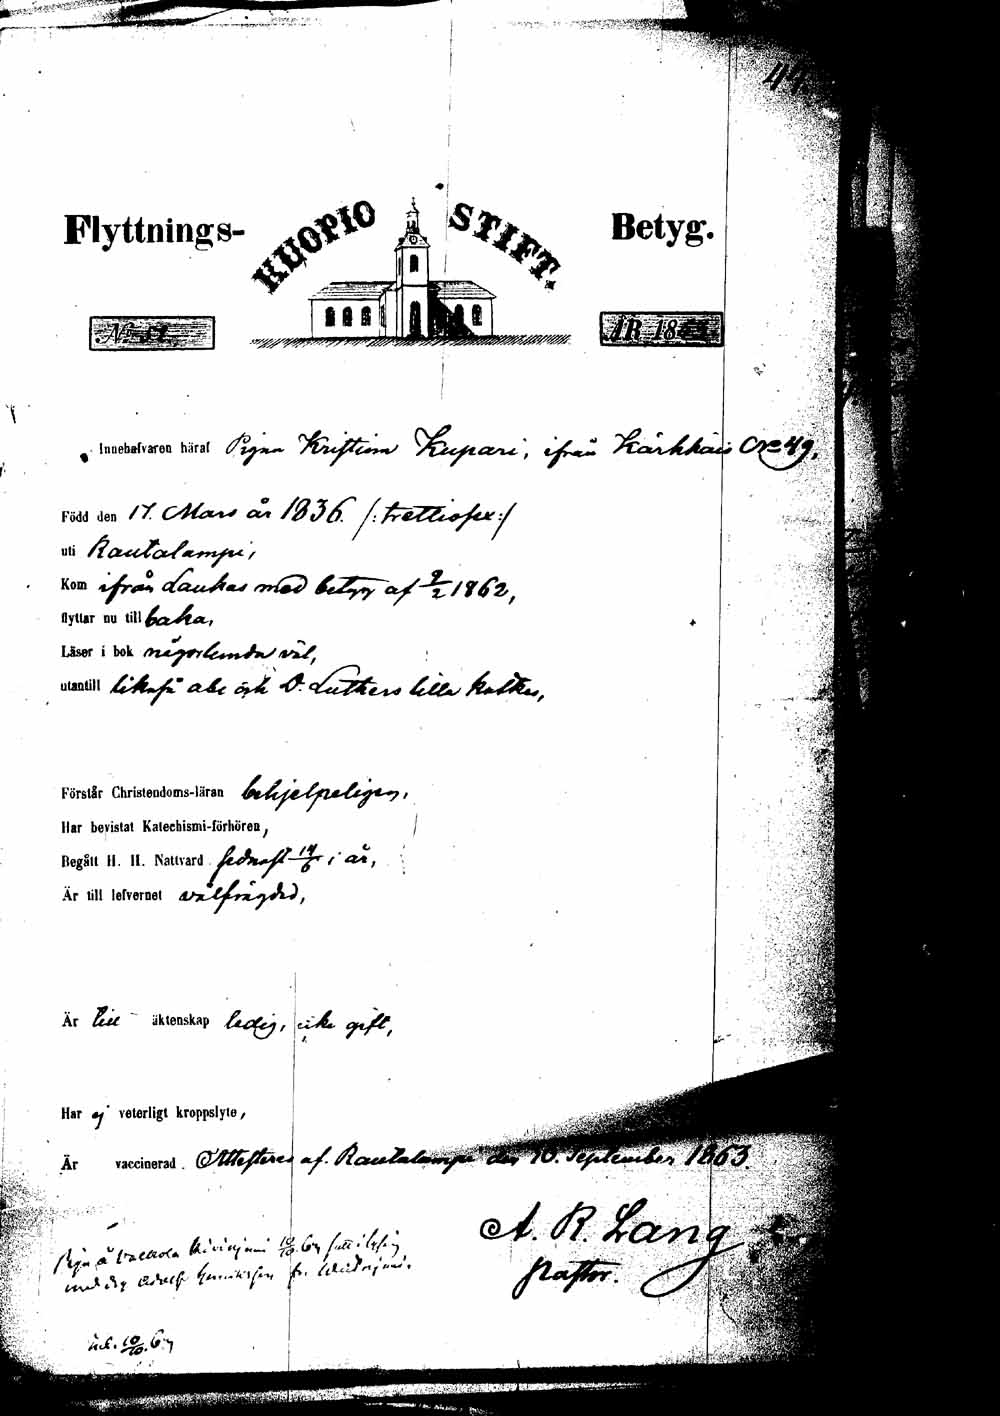 44.
Flyttnings- KUOPIO STIFT. Betyg.
No 51. ÅR 1863.
Innehafvaren häraf Pigan Kristina Kupari, ifrån Kärkkäis No 49.
Född den 17. Mars år 1836. /: trettiosex :/
uti Rautalampi,
Kom ifrån Laukas med betyg af 9/2 1862,
flyttar nu till baka,
Läser i bok någorlunda väl,
utantill likaså abc och D. Luthers lilla katkes,
Förstår Christendoms-läran behjelpeligen,
Har bevistat Katechismi-förhören,
Begått H. H. Nattvard sednast 14/6 i år,
Är till lefvernet välfrägdad,
Är till äktenskap ledig, icke gift,
Har ej veterligt kroppslyte,
Är vaccinerad. Attesteras af. Rautalampi den 10. September 1863.
A. R. Lang
Pastor.
Pigan å Kivinjemi 10/10 64
med drg Adolf
10/10 64